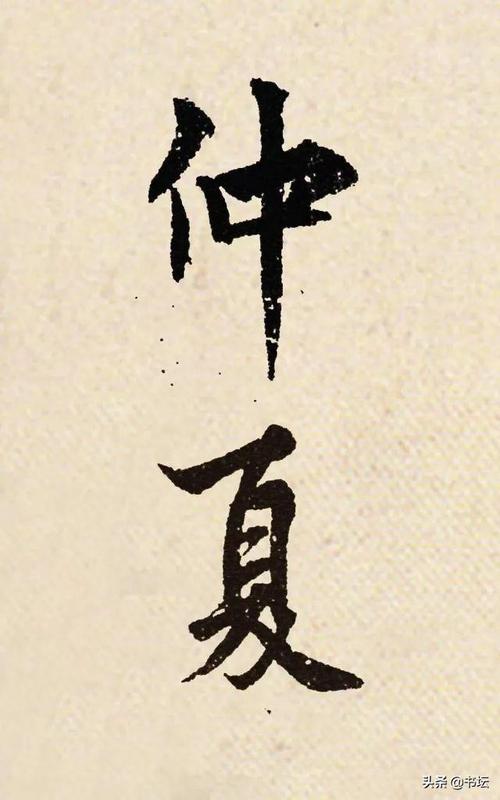 仲夏
头条 @书坛